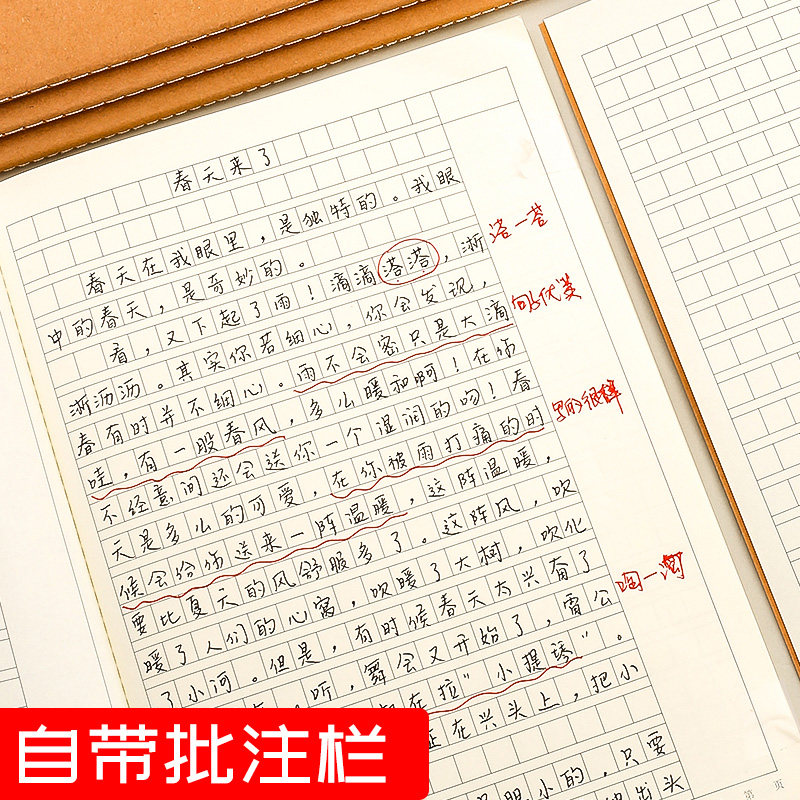 春天来了
春天在我眼里，是独特的。我眼
中的春天，是奇妙的。
看，又下起了雨！滴滴，淅
淅沥沥。其实你若细心，你会发现，
春有时并不细心。雨不会密只是大滴
哇，有一股春风，多么暖和啊！在你
不经意间还会送你一个湿润的吻！春
天是多么的可爱，在你被雨打痛的时
候会给你送来一阵温暖，这阵温暖，
要比夏天的风舒服多了。这阵风，吹
暖了人们的心窝，吹暖了大树，吹化
了小河。但是，有时候春天太兴奋了
听，舞会又开始了，雷公
在拉"小提琴"。
正在兴头上，把小
眼小的，只要
出头
句子优美
第 页
自带批注栏